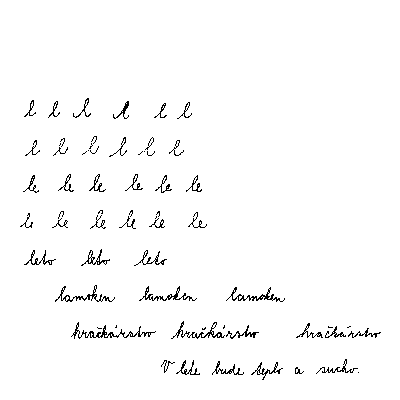 l l l l l l
l l l l l l
le le le le le le
le le le le le le
leto leto leto
lamoken lamoken lamoken
hračkárstvo hračkárstvo hračkárstvo
V lete bude teplo a sucho.